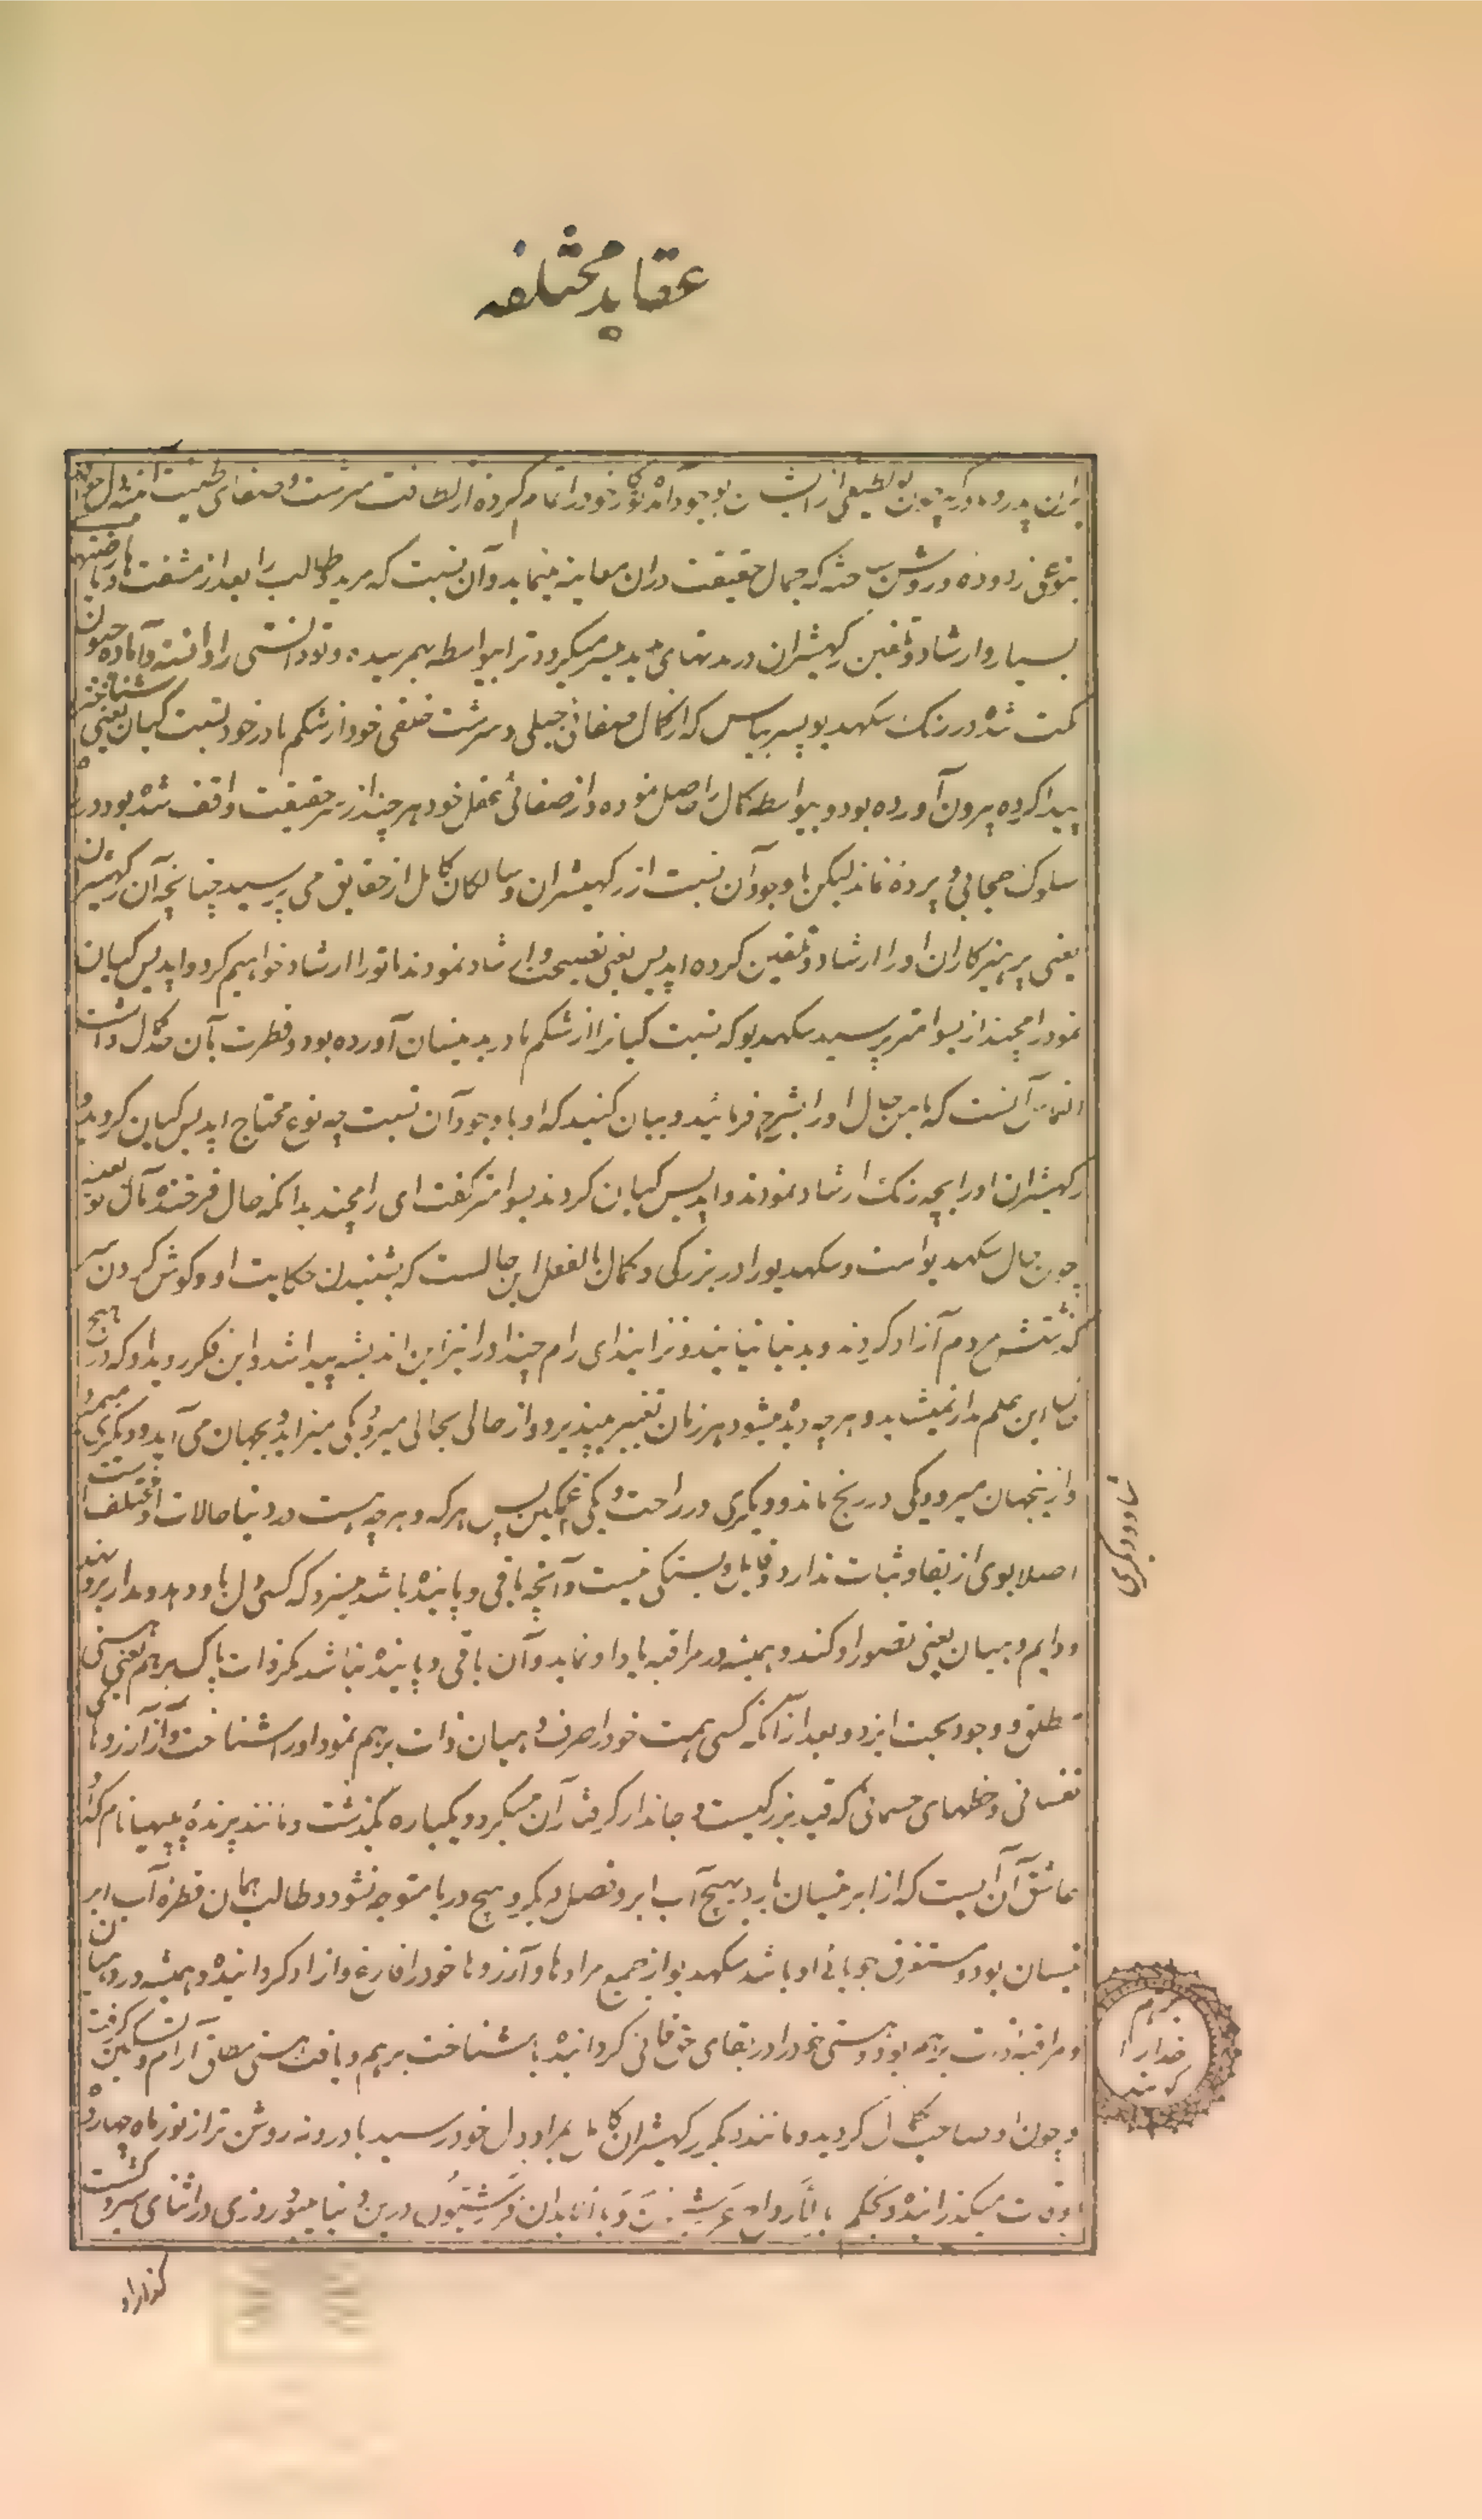 عقاید مختلفه
ازان پدر و مادر که چون تو لطیفی از ایشان بوجود آمد نیکوئی خود را تمام کرده از لطافت سرشت و صفای طینت آئینه دل خود را
بنوعی زدوده و روشن ساخته که جمال حقیقت دران معاینه مینماید و آن نسبت که مرید و طالب را بعد از مشقت ها و ریاضتهای
بسیار و ارشاد و تلقین رکهیشران در مدتهای مدید میسر میگردد ترا بیواسطه بهم رسیده و تو دانستنی را دانسته و آماده جیون
مکت شده در رنگ سکهدیو پسر بیاس که از کمال صفائی جبلی و سرشت خلقی خود از شکم مادر خود نسبت گیان یعنی شناختن
پیدا کرده بیرون آورده بود و بیواسطه کمال را حاصل نموده و از صفائی عقل خود هر چند از سر حقیقت واقف شده بود و در راه
سلوک حجابی و پرده نماند لیکن با وجود آن نسبت از رکهیشران و سالکان کامل از حقایق می پرسید چنانچه آن رکهیشران
یعنی پرهیزکاران او را ارشاد و تلقین کرده اپدیس یعنی نصیحت و ارشاد نمودند ما تو را ارشاد خواهیم کرد و اپدیس گیان
نمود رامچند از بسوامتر پرسید سکهدیو که نسبت گیان را از شکم مادر بدینسان آورده بود و فطرت بآن مکمل داشت
التماس آنست که بامن حال او را بشرح فرمائید و بیان کنید که او با وجود آن نسبت چه نوع محتاج اپدیس گیان گردید و
رکهیشران او را بچه رنگ ارشاد نمودند و اپدیس گیان کردند بسوامتر گفت ای رامچند بدانکه حال فرخنده مآل تو بعینه
چون حال سکهدیو است و سکهدیو را در بزرگی و کمال بالفعل این حالست که بشنیدن حکایت او و گوش کردن سر
گذشتش مردم آزاد گردند و بدنیا نیایند و نزایند ای رام چند او را نیز این اندیشه پیدا شد و این فکر روی داد که درین هیچ
این عالم مدار نمیشاید و هر چه دیده میشود هر زمان تغییر میپذیرد و از حالی بحالی میرود یکی میزاید و بجهان می آید و دیگری میمیرد
و ازینجهان میرود یکی در رنج ماند و دیگری در راحت و یکی غمگین پس هر که و هر چه هست در دنیا حالات او مختلف است
اصلا بوی از بقا و ثبات ندارد و قابل دلبستگی نیست و آنچه باقی و پاینده باشد میسزد که کسی دل باو دهد و مدار برو نهد
و دایم دهیان یعنی تصور او کند و همیشه در مراقبه یاد او نماید و آن باقی و پاینده نباشد مگر ذات پاک برهم یعنی هستی
مطلق و وجود بحت ایزد و بعد ازآنکه کسی همت خود را صرف دهیان ذات برهم نمود و او را شناخت و از آرزوهای
نفسانی و حظهای جسمانی که قید بزرگیست و جاندار گرفتار آن میگردد یکباره گذشت و مانند پرنده پپیها نام که او
عاشق آن آبیست که از ابر نیسان بارد بهیچ آب ابر و فصل دیگر و هیچ دریا متوجه نشود و طالب همان قطره آب ابر
نیسان بود و مستغرق جویائی او باشد سکهدیو از جمیع مرادها و آرزوها خود را فارغ و ازاد گردانیده و همیشه در دهیان
و مراقبه ذات برهم بود و هستی خود را در بقای حق فانی گردانیده بشناخت برهم و یافت هستی مطلق آرام و تسکین گرفت
و چون او صاحب کمال گردید و مانند دیگر رکهیشران کامل بمراد دل خود رسید با درونه روشن تر از نور ماه چهارده
اوقات میگذرانیده و بحکم بأرواح عرشیین و بأبدان فرشیون درین دنیا میبود روزی در اثنای سیر و گشت
گذار او
شاد و دیگری
برهم
خدا را
گویند